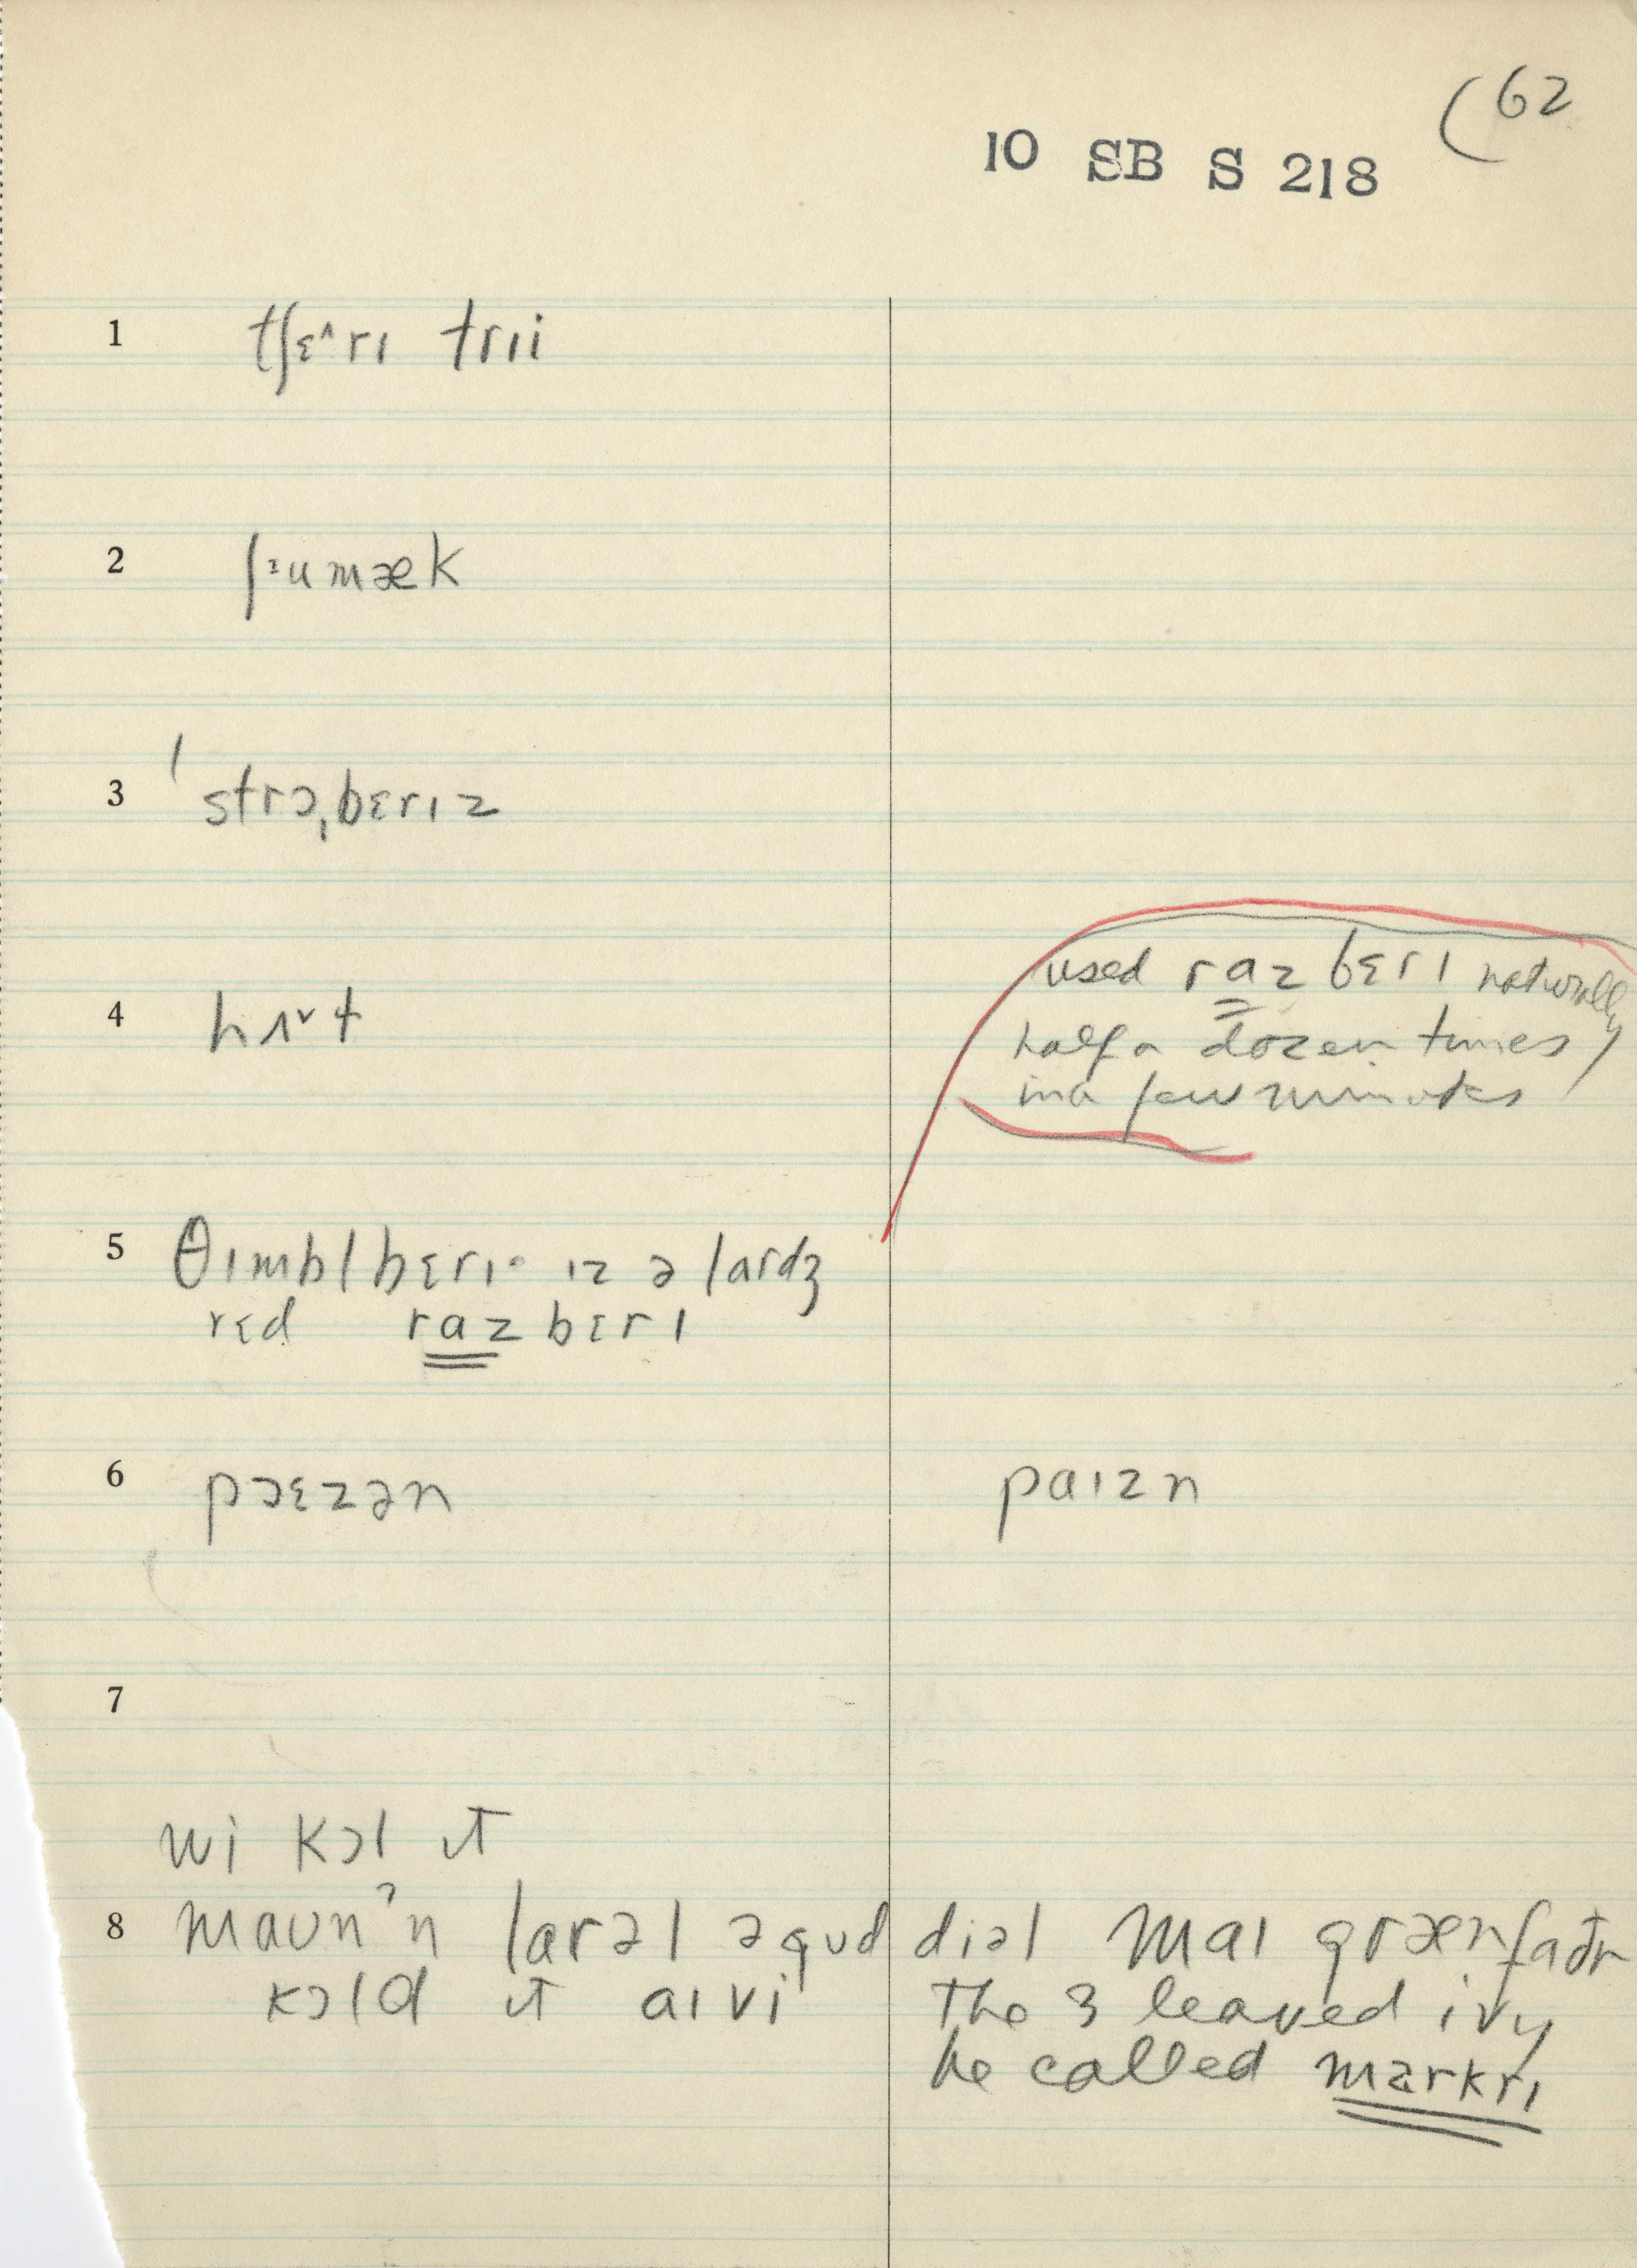 (62
10 SB S 218
1 tʃɛ^rɪ trɪi
2 ʃᶤumæk
3 ˈstrɔˌbɛrɪz
used razbɛrɪ naturally
half a dozen times
in a few minutes
4 hʌᵛt
5 θɪmblbɛrɪ· ɪz ə lardʒ
rɛd razbɛrɪ
6 pɔɛzən paɪzn
7
wi kɔl ɪt
8 maʊnˀn larəl əgʊd diəl maɪ grænfaðr
kɔld ɪt aɪvi the 3 leaved ivy
he called markrɪ